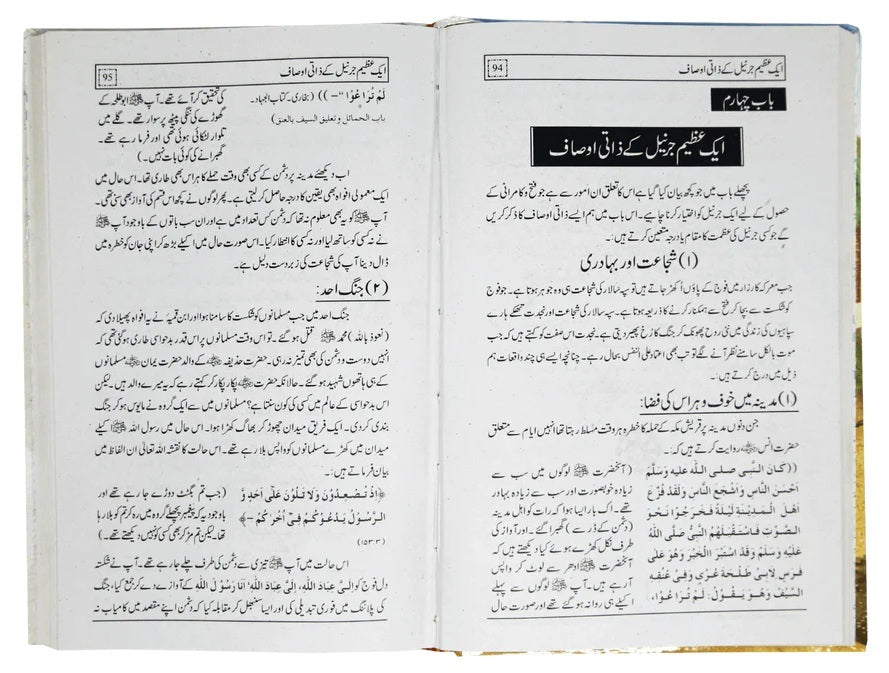 94
ایک عظیم جرنیل کے ذاتی اوصاف
باب چہارم
ایک عظیم جرنیل کے ذاتی اوصاف
پچھلے باب میں جو کچھ بیان کیا گیا ہے اس کا تعلق ان امور سے ہے جو فتح و کامرانی کے
حصول کے لیے ایک جرنیل کو اختیار کرنا چاہیے۔ اس باب میں ہم ایسے ذاتی اوصاف کا ذکر کریں
گے جو کسی جرنیل کی عظمت کا مقام یا درجہ متعین کرتے ہیں:۔
(۱) شجاعت اور بہادری
جب معرکہ کارزار میں فوج کے پاؤں اکھڑ جاتے ہیں تو سپہ سالار کی شجاعت ہی وہ جوہر ہوتا ہے۔ جو فوج
کو شکست سے بچا کر فتح سے ہمکنار کرنے کا ذریعہ ہوتا ہے۔ سپہ سالار کی شجاعت اور نجدت تھکے ہارے
سپاہیوں کی زندگی میں نئی روح پھونک کر جنگ کا رخ پھیر دیتی ہے۔ نجدت اس صفت کو کہتے ہیں کہ جب
موت بالکل سامنے نظر آنے لگے تو تب بھی اعتماد علی النفس بحال رہے۔ چنانچہ ایسے ہی چند واقعات ہم
ذیل میں درج کرتے ہیں:۔
(۱) مدینہ میں خوف و ہراس کی فضا:
جن دنوں مدینہ پر قریش مکہ کے حملہ کا خطرہ ہر وقت مسلط رہتا تھا انہیں ایام سے متعلق
حضرت انسؓ روایت کرتے ہیں کہ:۔
((كَانَ النَّبِى صلى الله عليه وسَلَّمَ
اَحْسَنَ النَّاسِ وَاَشْجَعَ النَّاسِ وَلَقَدْ فَزِعَ
اَهْلُ الْمَدِيْنَةِ لَيْلَةً فَخَرَجُوْا نَحْوَ
الصَّوْتِ فَاسْتَقْبَلَهُمُ النَّبِىُّ صَلَّى اللهُ
عَلَيْهِ وَسَلَّمَ وَقَدِ اسْتَبْرَا الْخَبَرَ وَهُوَ عَلٰى
فَرَسٍ لِاَبِىْ طَلْحَةَ عُرْىٍ وَفِىْ عُنُقِهِ
السَّيْفُ وَهُوَ يَقُوْلُ: لَمْ تُرَاعُوْا،
(آنحضرت ﷺ لوگوں میں سب سے
زیادہ خوبصورت اور سب سے زیادہ بہادر
تھے۔ اک بار ایسا ہوا کہ رات کو اہل مدینہ
(دشمن کے ڈر سے) گھبرا گئے۔ اور آواز کی
طرف نکل کھڑے ہوئے کیا دیکھتے ہیں کہ
آنحضرت ﷺ ادھر سے لوٹ کر واپس
آ رہے ہیں۔ آپ ﷺ لوگوں سے پہلے
اکیلے ہی روانہ ہو گئے تھے اور صورت حال
95
ایک عظیم جرنیل کے ذاتی اوصاف
لَمْ تُرَاعُوْا"۔)) (بخاری۔ کتاب الجہاد۔
باب الحمائل وتعليق السيف بالعنق)
کی تحقیق کر آئے تھے۔ آپ ﷺ ابو طلحہ کے
گھوڑے کی ننگی پیٹھ پر سوار تھے۔ گلے میں
تلوار لٹکائی ہوئی تھی اور فرما رہے تھے۔
گھبرانے کی کوئی بات نہیں۔)
اب دیکھئے مدینہ پر دشمن کے کسی بھی وقت حملے کا ہراس بھی طاری تھا۔ اس حال میں
ایک معمولی افواہ بھی یقین کا درجہ حاصل کر لیتی ہے۔ پھر لوگوں نے کچھ اس قسم کی آواز بھی سنی تھی۔
آپ ﷺ کو یہ بھی معلوم نہ تھا کہ دشمن کس تعداد میں ہے اور ان سب باتوں کے باوجود آپ ﷺ
نے نہ کسی کو ساتھ لیا اور نہ کسی کا انتظار کیا۔ اس صورت حال میں اکیلے بڑھ کر اپنی جان کو خطرہ میں
ڈال دینا آپ کی شجاعت کی زبردست دلیل ہے۔
(۲) جنگ احد:
جنگ احد میں جب مسلمانوں کو شکست کا سامنا ہوا اور ابن قمیۂ نے یہ افواہ پھیلا دی کہ
(نعوذ باللہ) محمد ﷺ قتل ہو گئے۔ تو اس وقت مسلمانوں پر اس قدر بدحواسی طاری ہو گئی تھی کہ
انہیں دوست و دشمن کی بھی تمیز نہ رہی۔ حضرت حذیفہؓ کے والد حضرت یمان مسلمانوں
کے ہی ہاتھوں شہید ہو گئے۔ حالانکہ حضرت پکار پکار کر کہتے رہے کہ یہ میرے والد ہیں۔ لیکن
اس بدحواسی کے عالم میں کسی کی کون سنتا ہے؟ مسلمانوں میں سے ایک گروہ نے مایوس ہو کر جنگ
بندی کر دی۔ ایک فریق میدان چھوڑ کر بھاگ کھڑا ہوا۔ اس حال میں رسول اللہ ﷺ اکیلے
میدان میں کھڑے مسلمانوں کو واپس بلا رہے تھے۔ اس حالت کا نقشہ اللہ تعالیٰ ان الفاظ میں
بیان فرماتے ہیں:۔
﴿اِذْ تُصْعِدُوْنَ وَلَا تَلْوٗنَ عَلٰٓى اَحَدٍ وَّ
الرَّسُوْلُ يَدْعُوْكُمْ فِىْٓ اُخْرٰكُمْ۔﴾
(۱۵۳:۳)
(جب تم بگٹٹ دوڑے جا رہے تھے اور
باوجود یہ کہ پیغمبر پچھلے گروہ میں رہ کر تم کو بلا رہا
تھا۔ لیکن تم مڑ کر بھی کسی کو نہیں دیکھتے تھے۔)
اس حالت میں آپ ﷺ تیزی سے دشمن کی طرف چلے جا رہے تھے۔ آپ نے شکستہ
دل فوج کو اِلَىَّ عِبَادَ اللهِ، اِلَىَّ عِبَادَ اللهِ، اَنَا رَسُوْلُ اللهِ کے آوازے دے کر جمع کیا، جنگ
کی پلاننگ میں فوری تبدیلی کی اور ایسا سنبھل کر مقابلہ کیا کہ دشمن اپنے مقصد میں کامیاب نہ